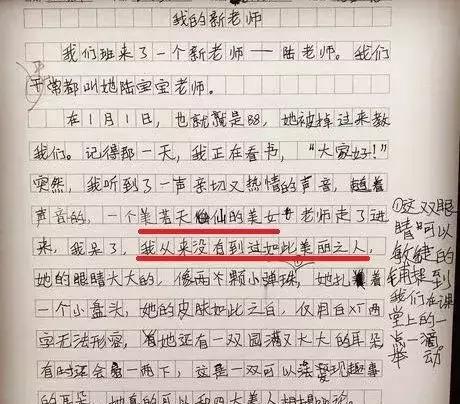 我的新老师
我们班来了一个新老师——陆老师。我们
平常都叫她陆宝宝老师。
在1月1日，也就是88，她被掉过来教
我们。记得那一天，我正在看书，“大家好！”
突然，我听到了一声亲切又热情的声音，随着
声音的，一个美若天仙的美女老师走了进
来，我呆了，我从来没有到过如此美丽之人，
她的眼睛大大的，像两颗小弹珠，她扎着
一个小盘头，她的皮肤如此之白，仅用白双两
字无法形容，她还有一双圆满又大大的耳朵
有时还会一两下，这是一双可以深发现趣事
的耳朵，她真的可以和四大美人相
①这双眼
睛可以
敏健的
捕捉到
我们在课
堂上的一
点一滴
举动。